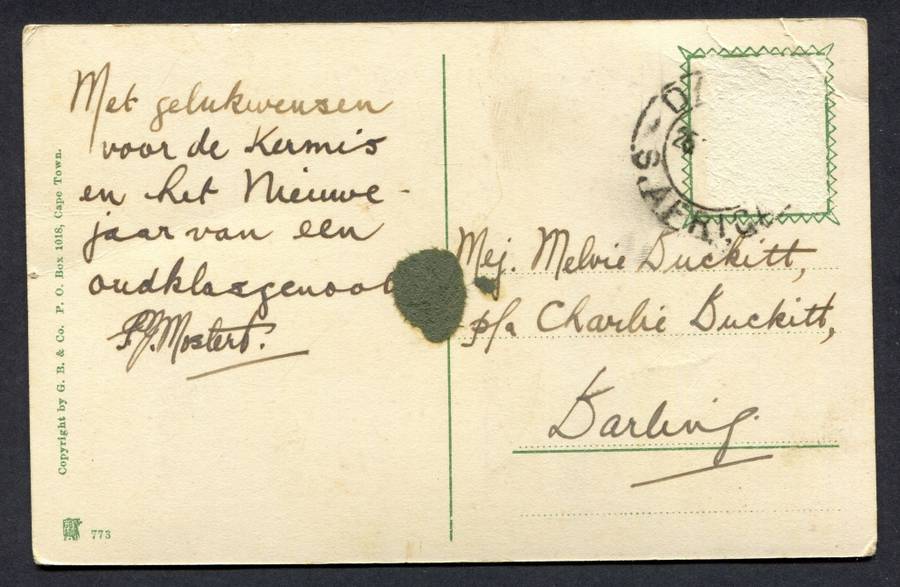 Met gelukwensen
voor de Kermis
en het Nieuwe-
jaar van een
oudklasgenoot
P.J. Mostert.
Mej. Melvie Duckitt,
p/a Charlie Duckitt,
Darling
S. AFRICA
26
Copyright by G. B. & Co. P. O. Box 1018, Cape Town.
773